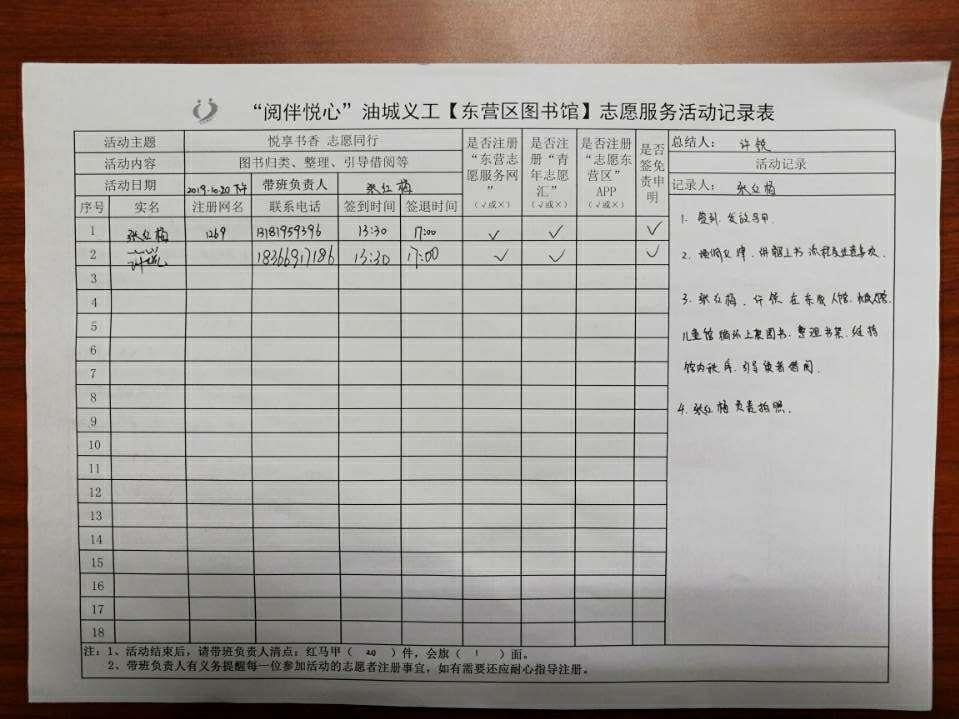 “阅伴悦心”油城义工【东营区图书馆】志愿服务活动记录表
活动主题 悦享书香 志愿同行 是否注册“东营志愿服务网”（√或×） 是否注册“青年志愿汇”（√或×） 是否注册“志愿东营区”APP（√或×） 是否签免责申明 总结人： 许锐
活动内容 图书归类、整理、引导借阅等 活动记录
活动日期 2019.10.20 下午 带班负责人 张红梅 记录人： 张红梅
序号 实名 注册网名 联系电话 签到时间 签退时间
1 张红梅 1269 13181959396 13:30 17:00 √ √ √
2 18366917186 13:30 17:00 √ √ √
3
4
5
6
7
8
9
10
11
12
13
14
15
16
17
18
1. 签到、发放马甲.
2. 讲解上书流程及注意事项.
3. 张红梅、许锐在东成人馆、
儿童馆循环上架图书、整理书架、维持
馆内秩序、引导读者借阅.
4. 张红梅负责拍照.
注：1、活动结束后，请带班负责人清点：红马甲（ 20 ）件，会旗（ 1 ）面。
2、带班负责人有义务提醒每一位参加活动的志愿者注册事宜，如有需要还应耐心指导注册。